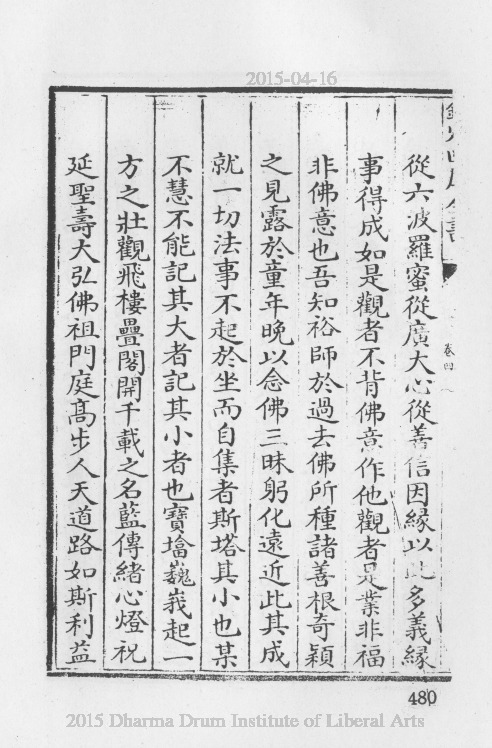 2015-04-16
卷四
從六波羅蜜從廣大心從善信因緣以此多義緣
事得成如是觀者不背佛意作他觀者是業非福
非佛意也吾知裕師於過去佛所種諸善根奇穎
之見露於童年晚以念佛三昧躬化遠近此其成
就一切法事不起於坐而自集者斯塔其小也某
不慧不能記其大者記其小者也寶墖巍峩起一
方之壯觀飛樓疊閣開千載之名藍傳緒心燈祝
延聖壽大弘佛祖門庭高步人天道路如斯利益
480
2015 Dharma Drum Institute of Liberal Arts